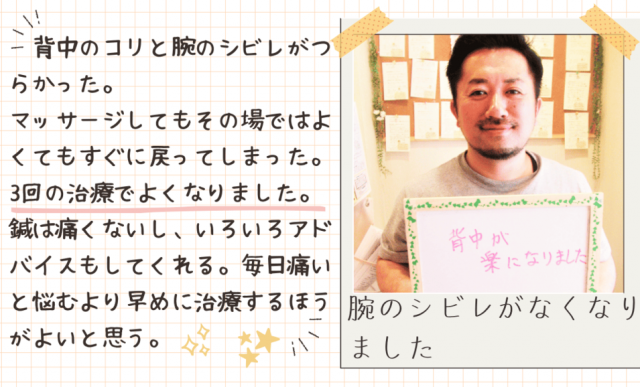 背中のコリと腕のシビレがつ
らかった。
マッサージしてもその場ではよ
くてもすぐに戻ってしまった。
3回の治療でよくなりました。
鍼は痛くないし、いろいろアド
バイスもしてくれる。毎日痛い
と悩むより早めに治療するほう
がよいと思う。
背中が
楽になりました
腕のシビレがなくなり
ました